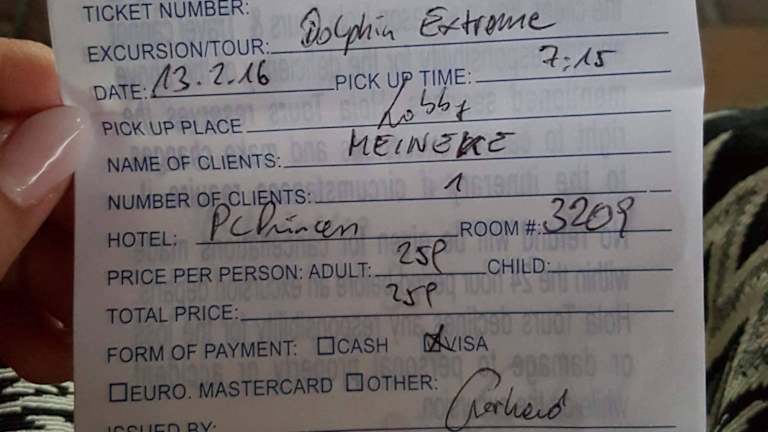 TICKET NUMBER:
EXCURSION/TOUR: Dolphin Extreme
DATE: 13.2.16 PICK UP TIME: 7:15
PICK UP PLACE Lobby
NAME OF CLIENTS: MEINEKE
NUMBER OF CLIENTS: 1
HOTEL: PC Princess ROOM #: 3209
PRICE PER PERSON: ADULT: 259 CHILD:
TOTAL PRICE: 259
FORM OF PAYMENT: CASH VISA
EURO. MASTERCARD OTHER:
ISSUED BY: